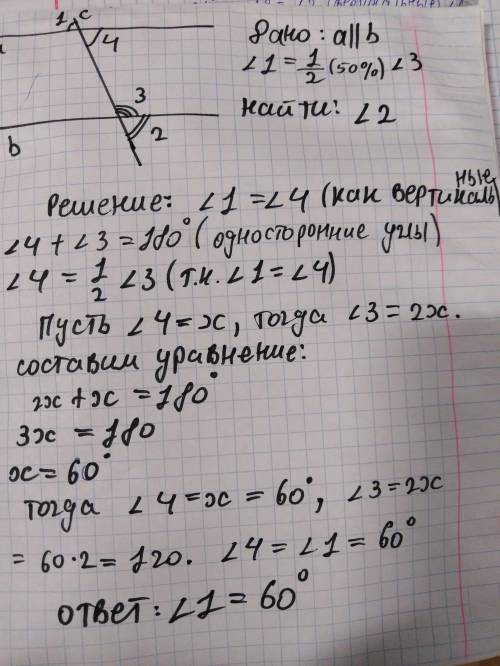 1 c
a 4
3
2
b
Дано: a||b
∠1 = 1/2 (50%) ∠3
Найти: ∠2
Решение: ∠1 = ∠4 (как вертикальные)
∠4 + ∠3 = 180° (односторонние углы)
∠4 = 1/2 ∠3 (т.к. ∠1 = ∠4)
Пусть ∠4 = x, тогда ∠3 = 2x.
составим уравнение:
2x + x = 180°
3x = 180
x = 60°
тогда ∠4 = x = 60°, ∠3 = 2x
= 60·2 = 120. ∠4 = ∠1 = 60°
ответ: ∠1 = 60°